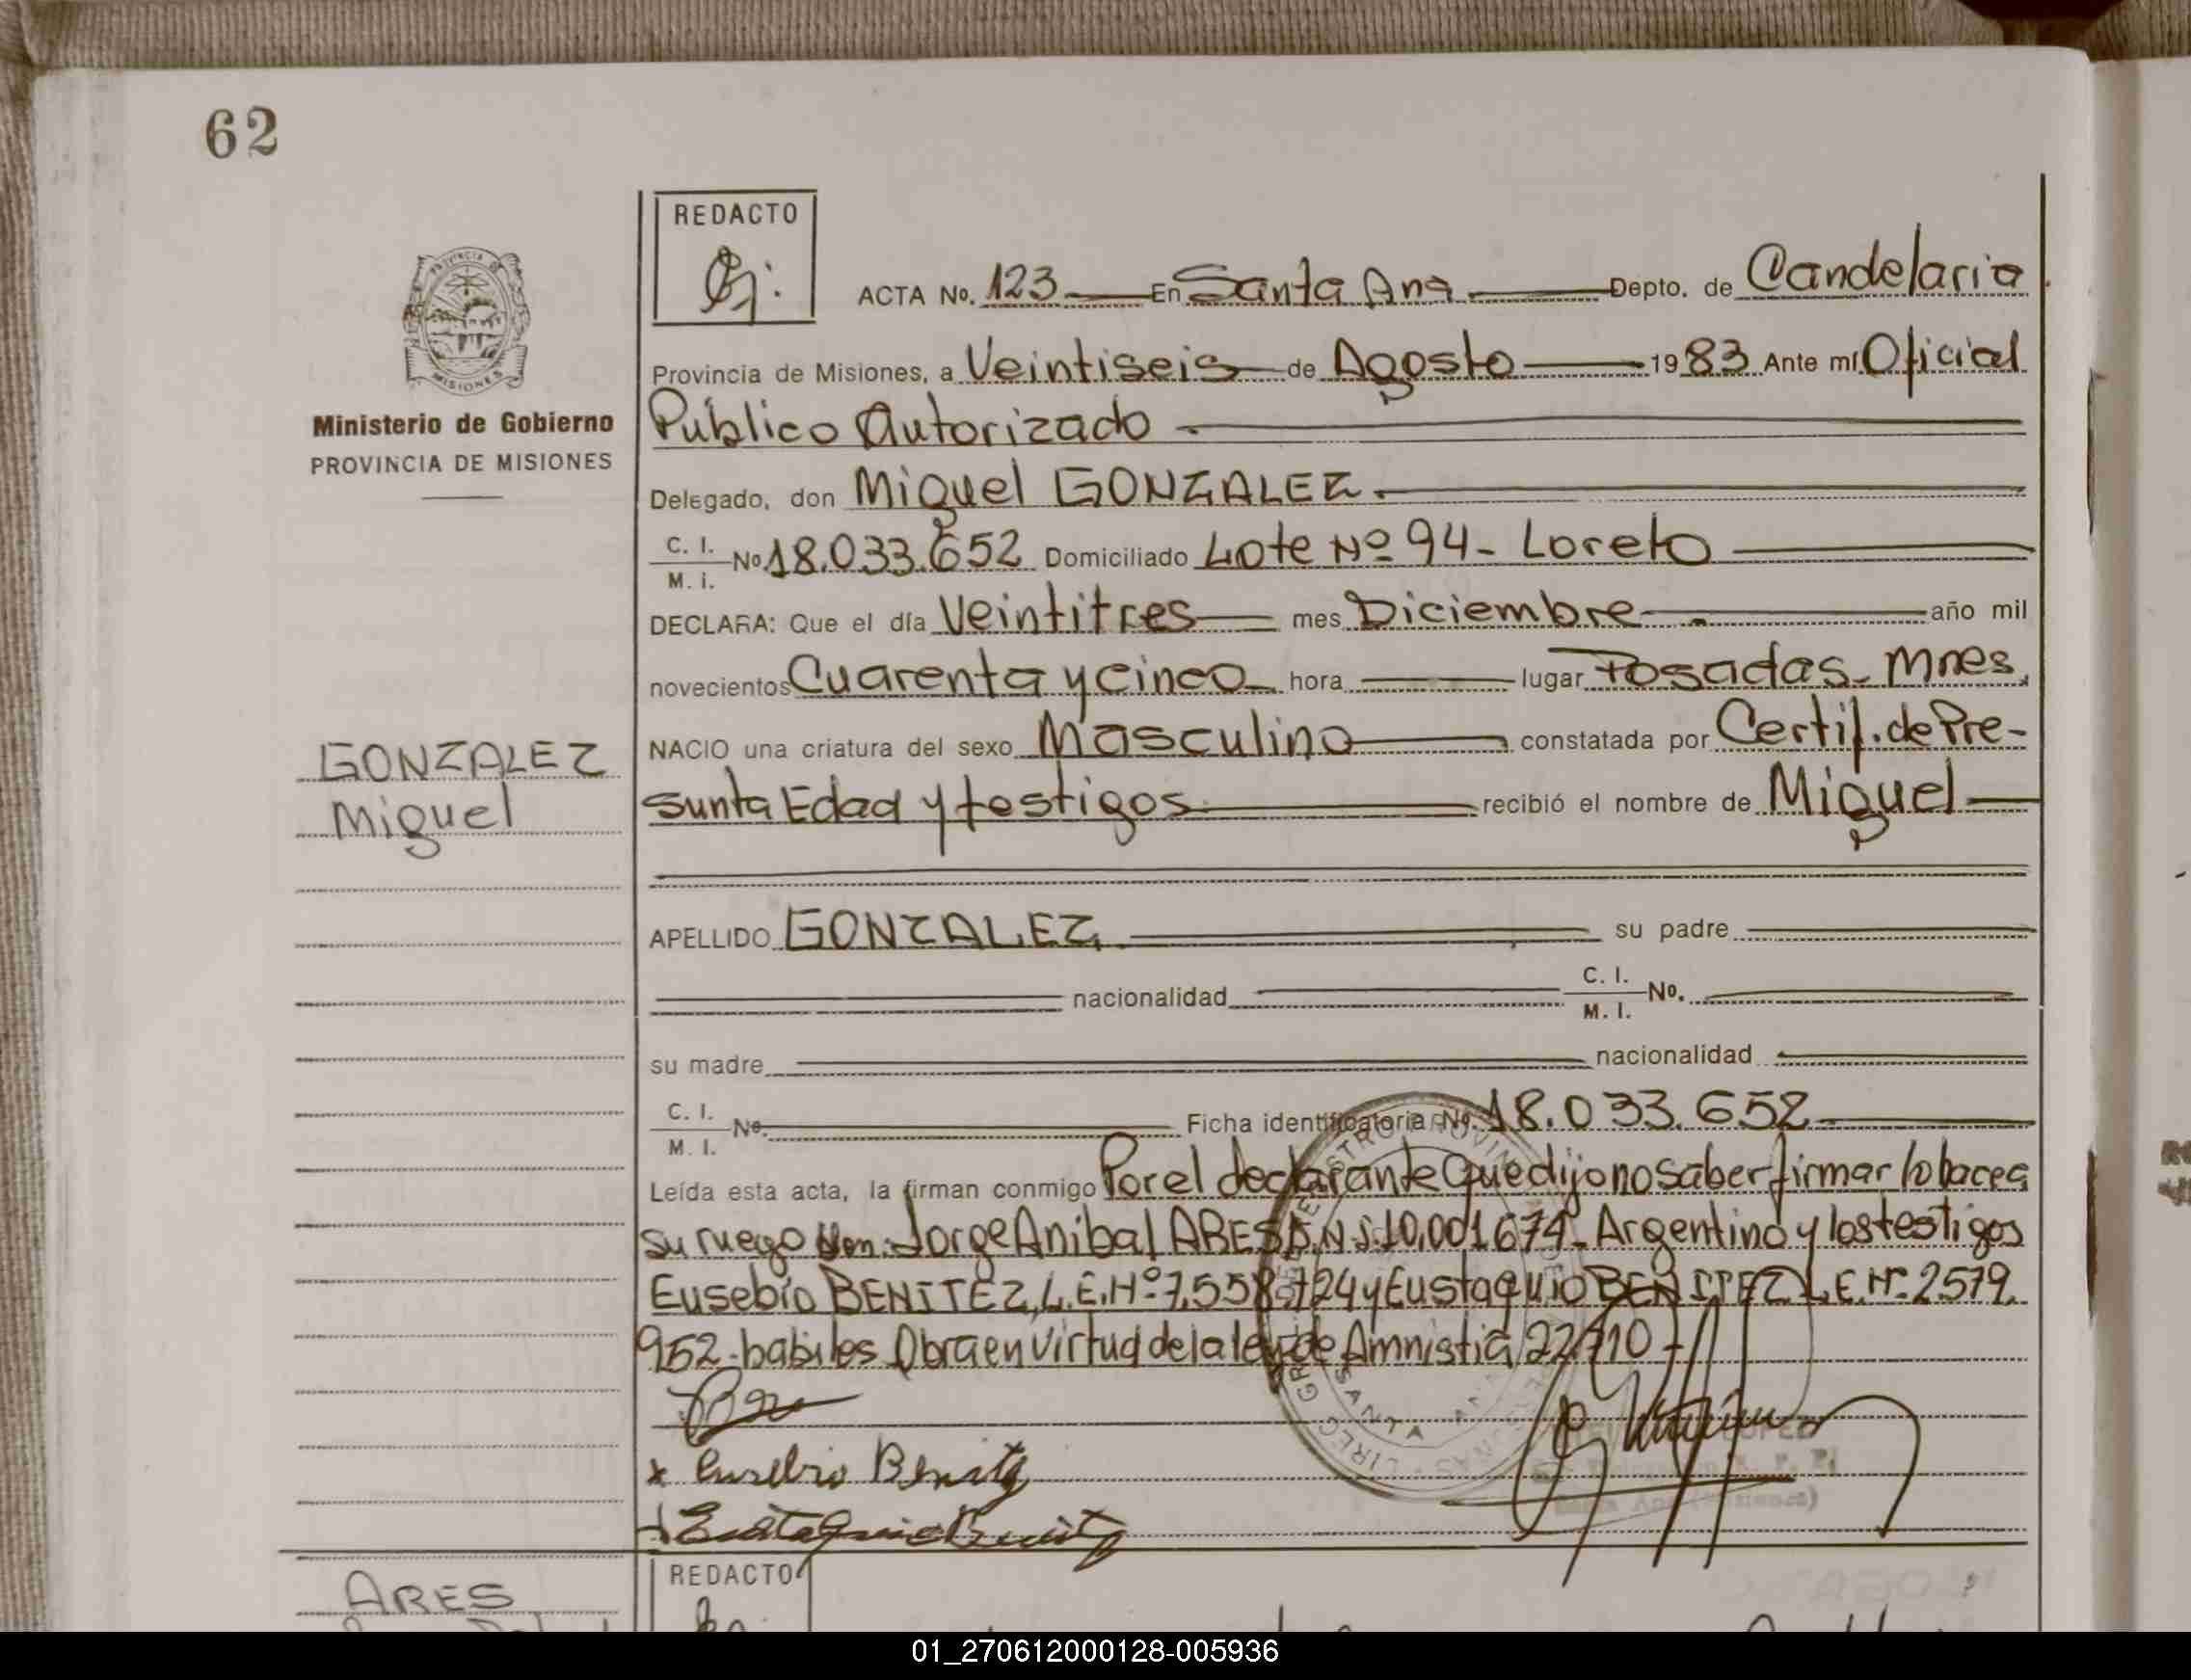 62
REDACTO
ACTA No. 123 En Santa Ana Depto. de Candelaria
PROVINCIA DE MISIONES
Provincia de Misiones, a Veintiseis de Agosto 1983 Ante mí Oficial
Ministerio de Gobierno
PROVINCIA DE MISIONES
Público Autorizado
Delegado, don Miguel GONZALEZ.
C. I. M. i. No 18.033.652 Domiciliado Lote Nº 94 - Loreto
DECLARA: Que el día Veintitres mes Diciembre año mil
novecientos Cuarenta y cinco hora lugar Posadas - Mnes.
NACIO una criatura del sexo Masculino constatada por Certif. de Pre-
GONZALEZ
Miguel
sunta Edad y testigos recibió el nombre de Miguel
APELLIDO GONZALEZ su padre
nacionalidad C. I. M. I. No.
su madre nacionalidad
C. I. M. I. No. Ficha identificatoria No. 18.033.652
Leída esta acta, la firman conmigo Por el declarante Que dijo no saber firmar lo hace a
su ruego Don: Jorge Anibal ARES D.N.I. 10.001674 - Argentino y los testigos
Eusebio BENITEZ, L.E. Nº 7.558.724 y Eustaquio BENITEZ L.E. Nº 2579.
952 - habiles Obra en virtud de la ley de Amnistia 22/710 -
Eusebio Benitez
Eustaquio Benitez
SANTA ANA
ARES
REDACTO
01_270612000128-005936